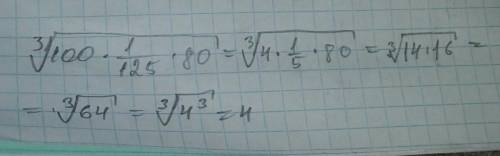 ∛(100 · 1/125 · 80) = ∛(4 · 1/5 · 80) = ∛(14 · 16) =
= ∛64 = ∛4³ = 4